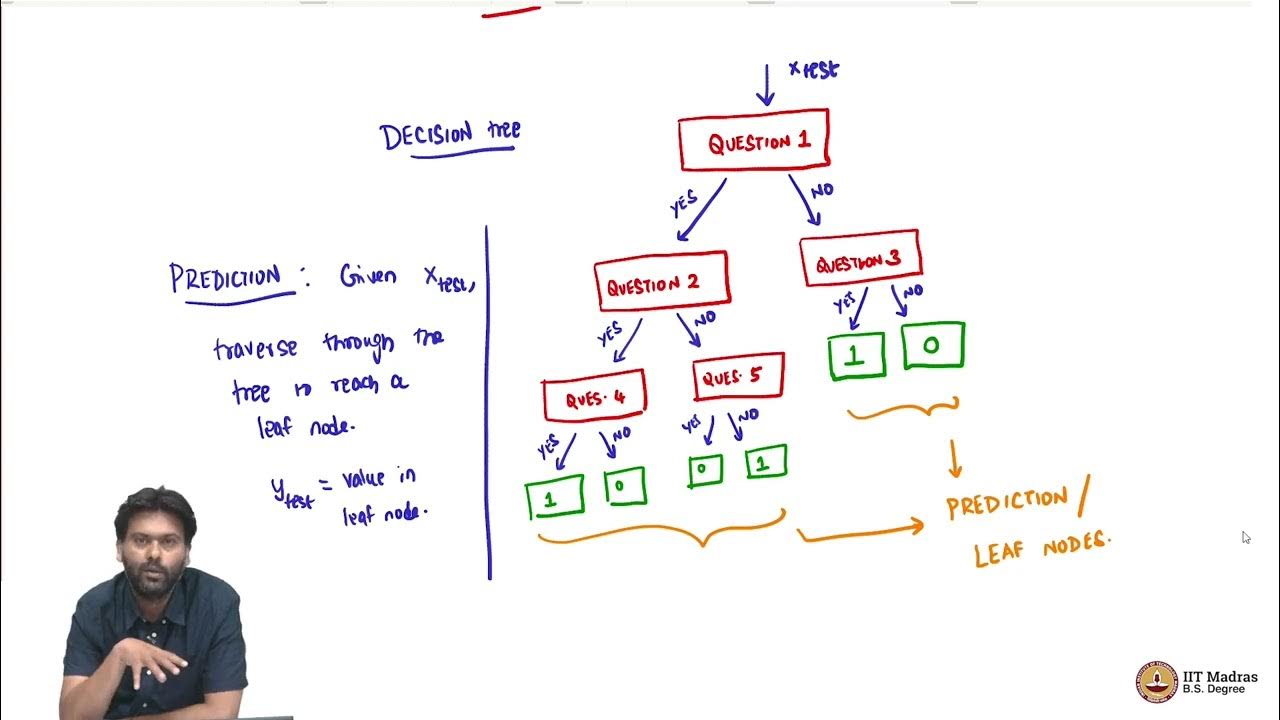 DECISION tree
PREDICTION : Given xtest,
traverse through the
tree to reach a
leaf node.
ytest = value in
leaf node.
xtest
QUESTION 1
YES
NO
QUESTION 2
QUESTION 3
YES
NO
YES
NO
QUES. 4
QUES. 5
1
0
YES
NO
YES
NO
1
0
0
1
PREDICTION /
LEAF NODES.
IIT Madras
B.S. Degree